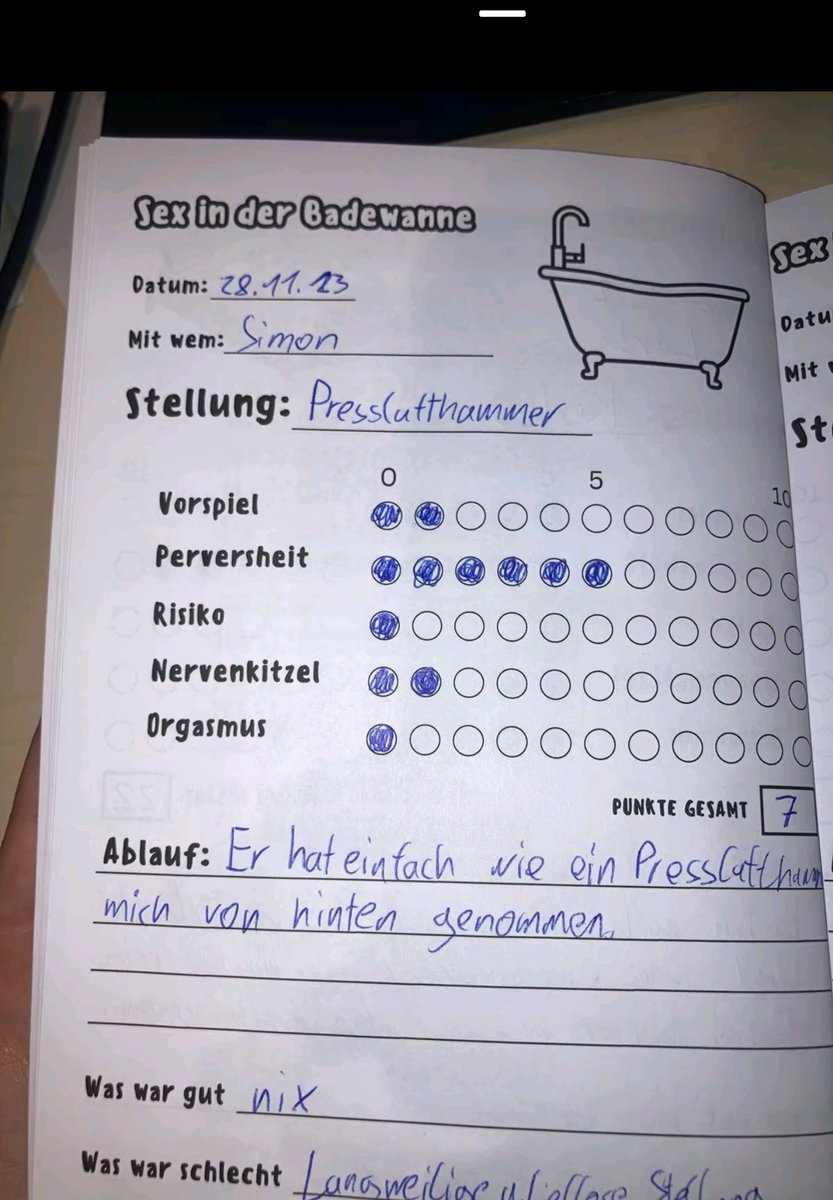 Sex in der Badewanne
Datum: 28.11.23
Mit wem: Simon
Stellung: Presslufthammer
0 5 10
Vorspiel
Perversheit
Risiko
Nervenkitzel
Orgasmus
PUNKTE GESAMT 7
Ablauf: Er hat einfach wie ein Pressluftham
mich von hinten genommen.
Was war gut nix
Was war schlecht Langweilige
Sex
Datu
Mit
St